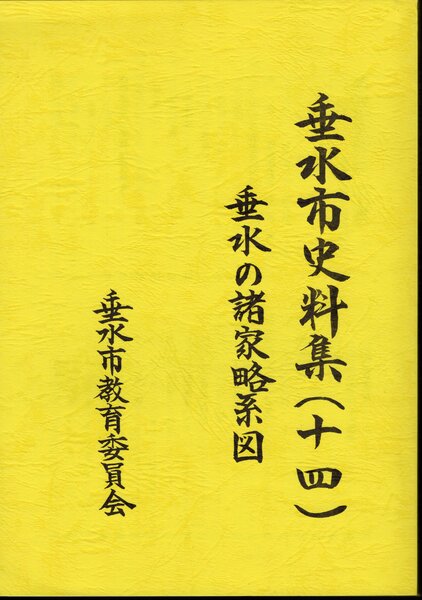 垂水市史料集(十四)
垂水の諸家略系図
垂水市教育委員会